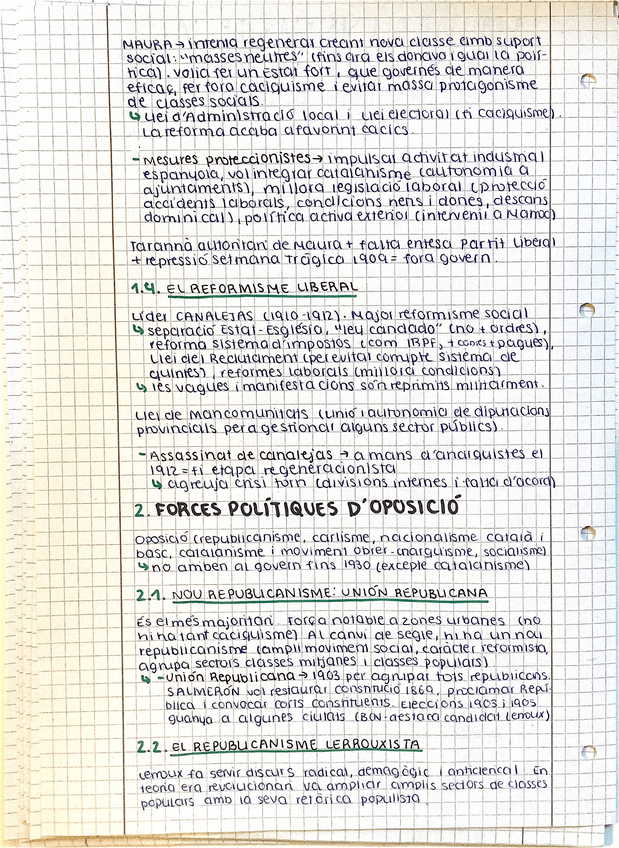 MAURA → intenta regenerar creant nova classe amb suport
social: "masses neutres" (fins ara els donava igual la polí-
tica). Volia fer un Estat fort, que governés de manera
eficaç, per fora caciquisme i evitar massa protagonisme
de classes socials.
↳ Llei d'Administració local i Llei electoral (fi caciquisme).
La reforma acaba afavorint cacics.
- Mesures proteccionistes → impulsar activitat industrial
espanyola, vol integrar catalanisme (autonomia a
ajuntaments), millora legislació laboral (protecció
accidents laborals, condicions nens i dones, descans
dominical), política activa exterior (intervenir a Marroc)
Tarannà autoritari de Maura + falta entesa partit liberal
+ repressió Setmana Tràgica 1909 = fora govern.
1.4. EL REFORMISME LIBERAL
Líder CANALEJAS (1910-1912). Major reformisme social
↳ separació Estat-Església, "ley candado" (no + ordres),
reforma sistema d'impostos (com IRPF, + cobres + pagues),
Llei del Reclutament (per evitar compte sistema de
quintes), reformes laborals (millora condicions)
↳ les vagues i manifestacions són reprimits militarment.
Llei de Mancomunitats (unió i autonomia de diputacions
provincials per a gestionar alguns sector públics).
- Assassinat de Canalejas → a mans d'anarquistes el
1912 = fi etapa regeneracionista
↳ agreuja crisi torn (divisions internes i falta d'acord)
2. FORCES POLÍTIQUES D'OPOSICIÓ
Oposició (republicanisme, carlisme, nacionalisme català i
basc, catalanisme i moviment obrer-anarquisme, socialisme)
↳ no arriben al govern fins 1930 (excepte catalanisme)
2.1. NOU REPUBLICANISME: UNIÓN REPUBLICANA
És el més majoritari. Força notable a zones urbanes (no
hi ha tant caciquisme) Al canvi de segle, hi ha un nou
republicanisme (ampli moviment social, caràcter reformista,
agrupa sectors classes mitjanes i classes populars)
↳ - Unión Republicana → 1903 per agrupar tots republicans.
SALMERÓN vol restaurar constitució 1869, proclamar Repú-
blica i convocar corts constituents. Eleccions 1903 i 1905
guanya a algunes ciutats (BCN-destaca candidat Lerroux)
2.2. EL REPUBLICANISME LERROUXISTA
Lerroux fa servir discurs radical, demagògic i anticlerical. En
teoria era revolucionari. Va ampliar amplis sectors de classes
populars amb la seva retòrica populista.